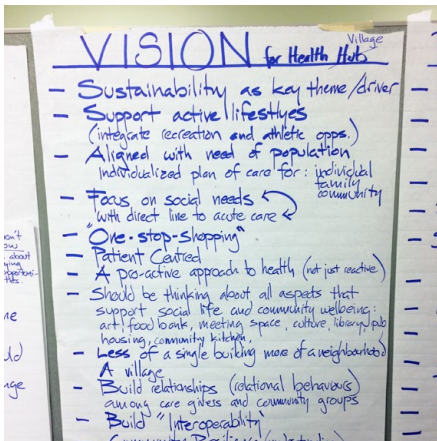 Village
VISION for Health Hub
- Sustainability as key theme/driver
- Support active lifestlyes
(integrate recreation and athletic opps.)
- Aligned with need of population
Individualized plan of care for: individual
family
community
- Focus on social needs
with direct line to acute care
- "One-stop-shopping"
- Patient Centred
- A pro-active approach to health (not just reactive)
- Should be thinking about all aspects that
support social life and community wellbeing:
art, food bank, meeting space, culture, library, pub
housing, community kitchen.
- Less of a single building more of a neighbourhood
A village
- Build relationships (relational behaviours)
among care givers and community groups
- Build "Interoperability"
about